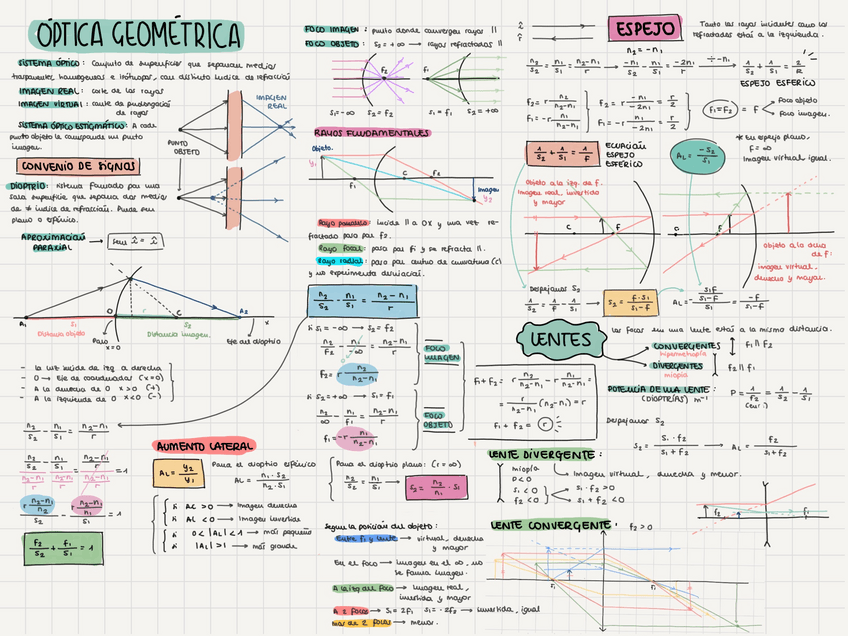 ÓPTICA GEOMÉTRICA
SISTEMA ÓPTICO: Conjunto de superficies que separan medios
transparentes, homogéneos e isótropos, con distinto índice de refracción
IMAGEN REAL: corte de los rayos
IMAGEN VIRTUAL: corte de prolongación
de rayos
SISTEMA ÓPTICO ESTIGMÁTICO: A cada
punto objeto le corresponde un punto
imagen.
PUNTO
OBJETO
IMAGEN
REAL
CONVENIO DE SIGNOS
DIOPTRIO: sistema formado por una
sola superficie que separa dos medios
de ≠ índice de refracción. Puede ser
plano o esférico.
APROXIMACIÓN
PARAXIAL
A1
O
C
A2
x
S1
S2
Distancia objeto
Distancia imagen
Polo
x=0
Eje del dióptrio
- la luz incide de izq a derecha
- O → Eje de coordenadas (x=0)
- A la derecha de O x>0 (+)
- A la izquierda de O x<0 (-)
n2/S2 - n1/S1 = n2-n1/r
f2/S2 + f1/S1 = 1
AUMENTO LATERAL
AL = y2/y1
Para el dioptrio esférico
AL = n1·S2/n2·S1
Si AL > 0 → Imagen derecha
Si AL < 0 → Imagen invertida
Si 0 < |AL| < 1 → más pequeño
Si |AL| > 1 → más grande
FOCO IMAGEN: punto donde convergen rayos ||
FOCO OBJETO: S2 = +∞ → rayos refractados ||
S1 = -∞ S2 = f2
S1 = f1 S2 = +∞
RAYOS FUNDAMENTALES
Objeto
y1
F1
C
F2
Imagen
y2
Rayo paralelo: incide || a OX y una vez re-
fractado pasa por f2.
Rayo focal: pasa por f1 y se refracta ||.
Rayo radial: pasa por centro de curvatura (C)
y no experimenta desviación.
n2/S2 - n1/S1 = n2-n1/r
Si S1 = -∞ → S2 = f2
n2/f2 - n1/-∞ = n2-n1/r
f2 = r n2/n2-n1
FOCO
IMAGEN
Si S2 = +∞ → S1 = f1
n2/∞ - n1/f1 = n2-n1/r
f1 = -r n1/n2-n1
FOCO
OBJETO
Para el dioptrio plano: (r = ∞)
n2/S2 - n1/S1 = 0
S2 = n2/n1 · S1
Según la posición del objeto:
Entre f1 y lente → virtual, derecha
y mayor
En el foco → Imagen en el ∞, no
se forma imagen.
A la izq del foco → Imagen real,
invertida y mayor
A 2 focos → S1 = 2f1 S1 = -2f2 → invertida, igual
más de 2 focos → menor.
ESPEJO
Tanto los rayos incidentes como los
refractados están a la izquierda.
n2 = -n1
n2/S2 - n1/S1 = n2-n1/r → -n1/S2 - n1/S1 = -2n1/r → 1/S2 + 1/S1 = 2/R
ESPEJO ESFÉRICO
f2 = r n2/n2-n1
f1 = -r n1/n2-n1
f2 = r -n1/-2n1 = r/2
f1 = -r n1/-2n1 = r/2
f1=f2 = f
foco objeto
foco imagen.
1/S2 + 1/S1 = 1/f
ECUACIÓN
ESPEJO
ESFÉRICO
AL = -S2/S1
* En espejo plano,
f = ∞
Imagen virtual igual.
Objeto a la izq. de f.
Imagen real, invertida
y mayor
C
F
objeto a la dcha
de f:
imagen virtual,
derecha y mayor.
Despejamos S2
1/S2 = 1/f - 1/S1 → S2 = f·S1/S1-f
LENTES
Los focos en una lente están a la misma distancia.
CONVERGENTES
hipermetropía
f1 || f2
DIVERGENTES
miopía
f2 || f1
f1 + f2 = r n2/n2-n1 - r n1/n2-n1 =
r/n2-n1 (n2-n1) = r
f1 + f2 = r
POTENCIA DE UNA LENTE:
(DIOPTRÍAS) m⁻¹
P = 1/f2 = 1/S2 - 1/S1
Despejamos S2
S2 = S1·f2/S1+f2 → AL = f2/S1+f2
LENTE DIVERGENTE:
miopía → Imagen virtual, derecha y menor.
P<0
S1 < 0
f2 < 0
S1·f2 > 0
S1 + f2 < 0
LENTE CONVERGENTE: f2 > 0